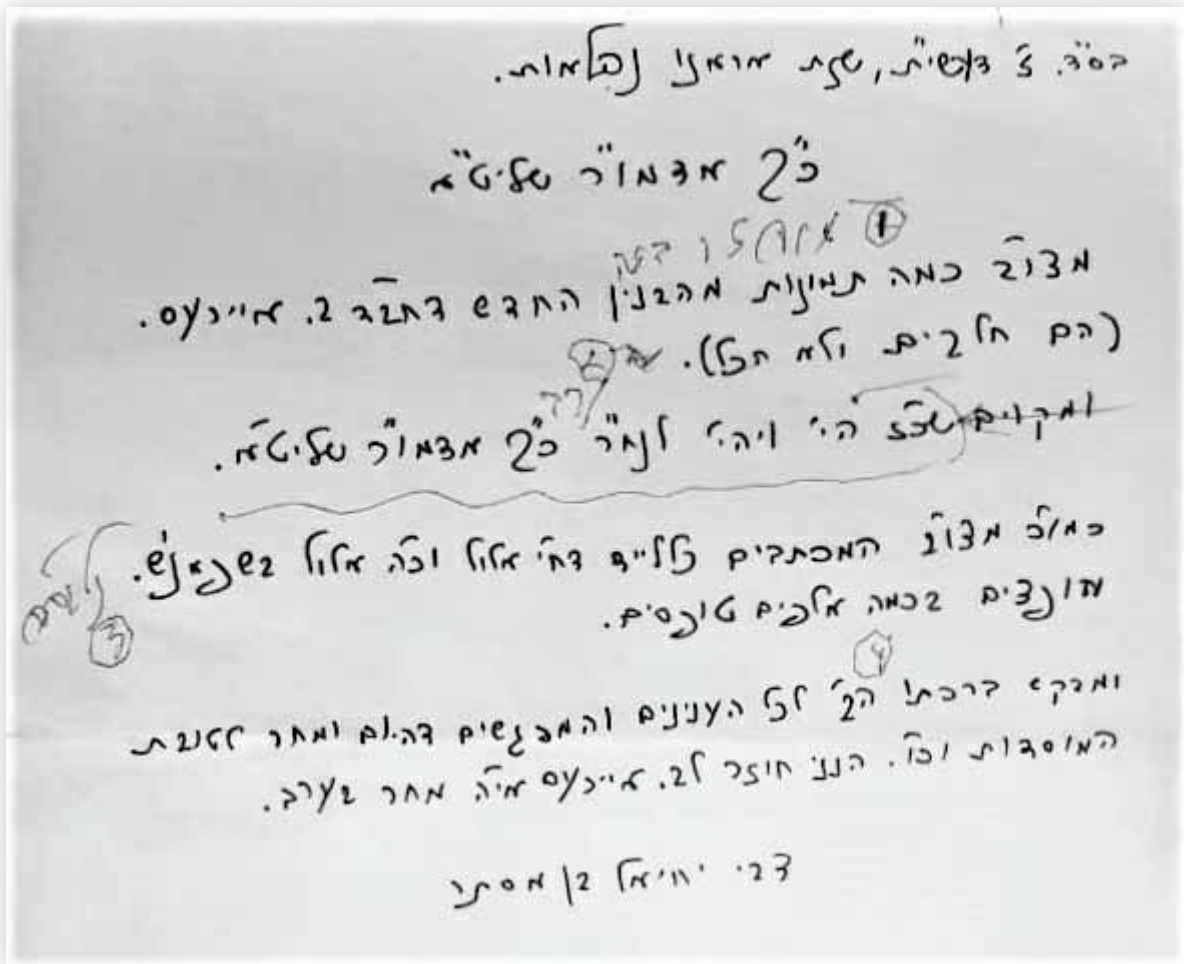 בס"ד. ז' דעשי"ת, שנת אראנו נפלאות.
כ"ק אדמו"ר שליט"א
①
מצו"ב כמה תמונות מהבנין החדש דחב"ד ב. איירעס.
(הם חלקים ולא הכל). ②
ומקוים שכ"ז הי' ויהי' לנח"ר כ"ק אדמו"ר שליט"א.
כמו"כ מצו"ב המכתבים כללי"ד דח"י אלול וכ"ה אלול בשפאניש.
עונדים בכמה אלפים טופסים.
③
④
ומבקש ברכתו הק' לכל הענינים והמפגשים דהיום ומחר לטובת
המוסדות וכו'. הנני חוזר לב. איירעס אי"ה מחר בערב.
צבי יחיאל בן אסתר